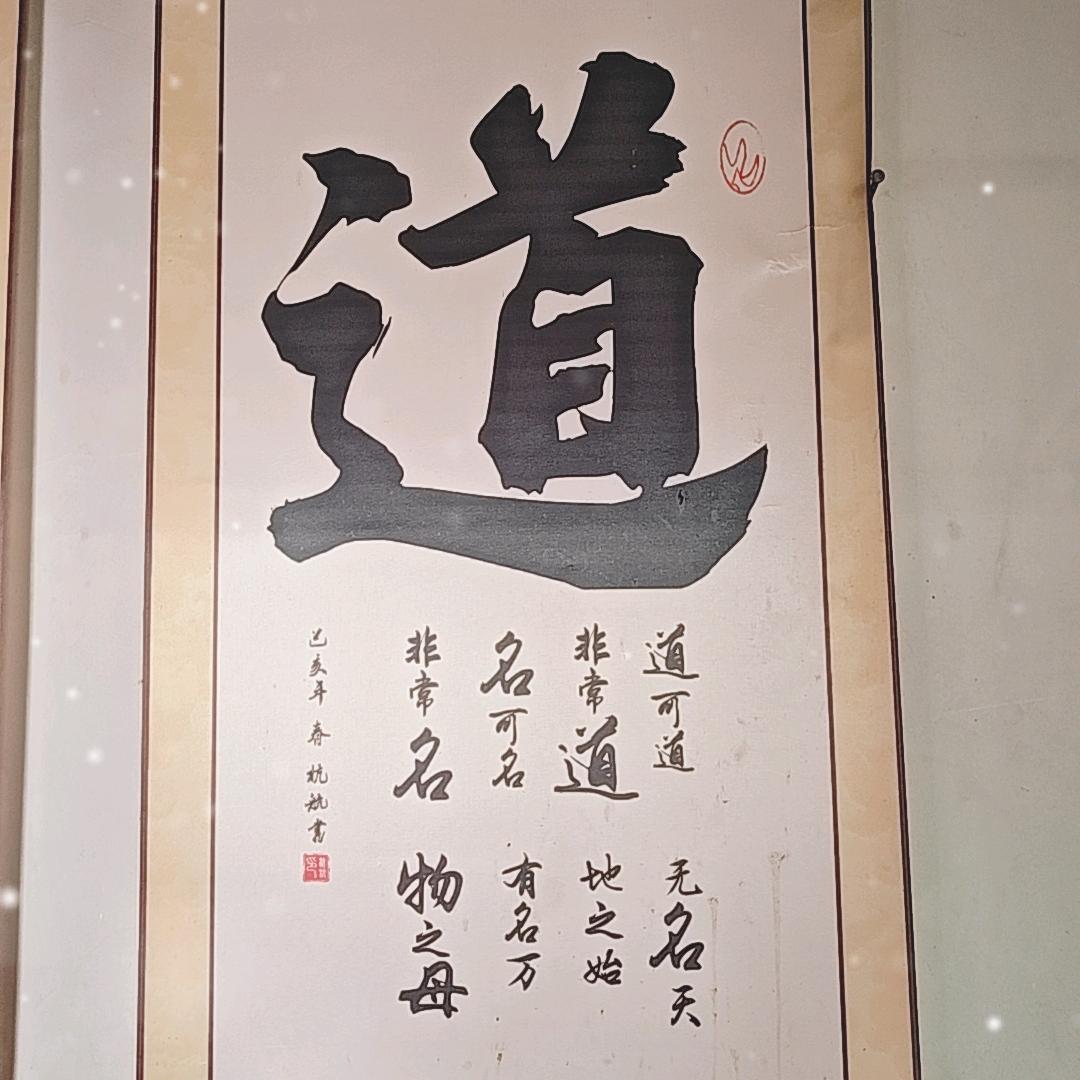 道
道可道
非常道
名可名
非常名
无名天
地之始
有名万
物之母
己亥年 春 杭航书